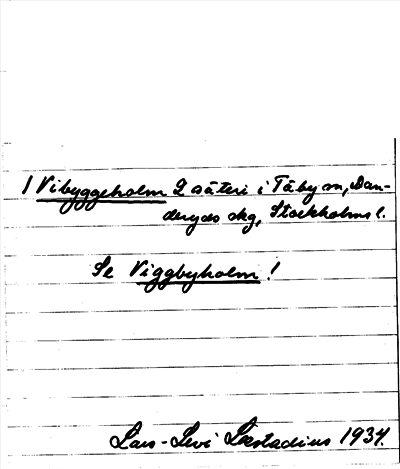 1 Vibyggeholm 2 säteri i Täby sn, Dan-
deryds skg, Stockholms l.
Se Viggbyholm!
Lars-Levi Læstadius 1934.